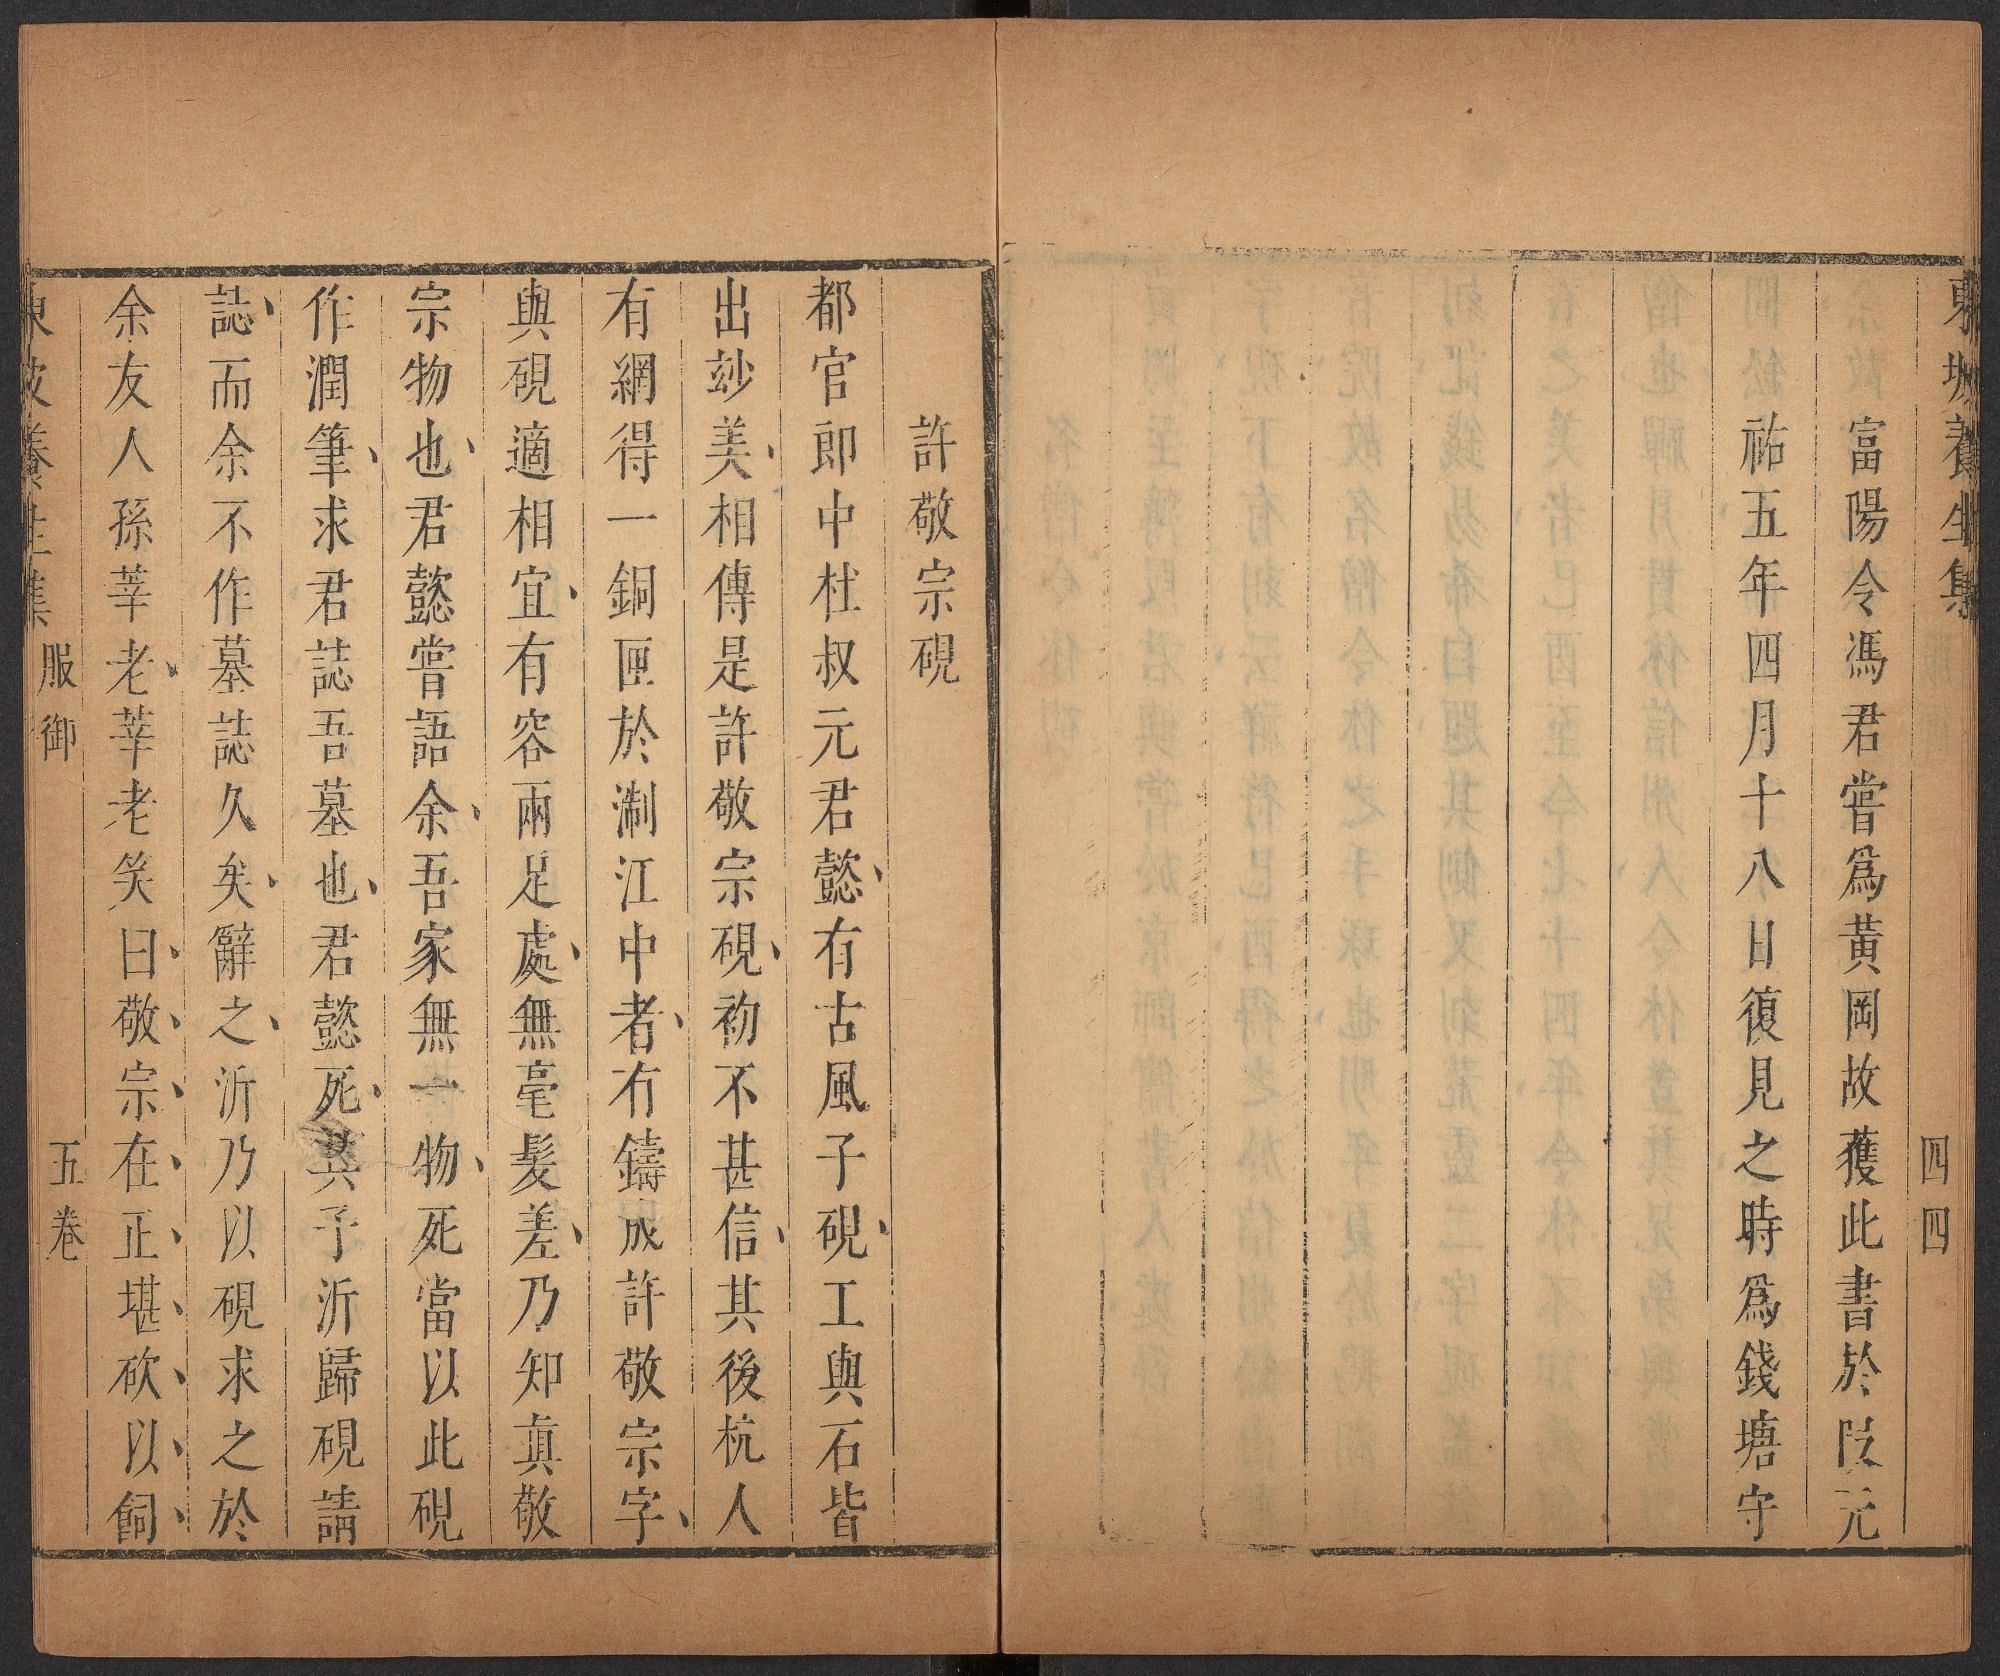 東坡養生集
四四
富陽令馮君嘗爲黃岡故獲此書於叚元
祐五年四月十八日復見之時爲錢塘守
許敬宗硯
都官郎中杜叔元君懿有古風子硯工與石皆
出妙美相傳是許敬宗硯初不甚信其後杭人
有網得一銅匣於淛江中者有鑄成許敬宗字
與硯適相宜有容兩足處無毫髮差乃知真敬
宗物也君懿嘗語余吾家無一物死當以此硯
作潤筆求君誌吾墓也君懿死其子沂歸硯請
誌而余不作墓誌久矣辭之沂乃以硯求之於
余友人孫莘老莘老笑曰敬宗在正堪砍以飼
東坡養生集
服御
五卷